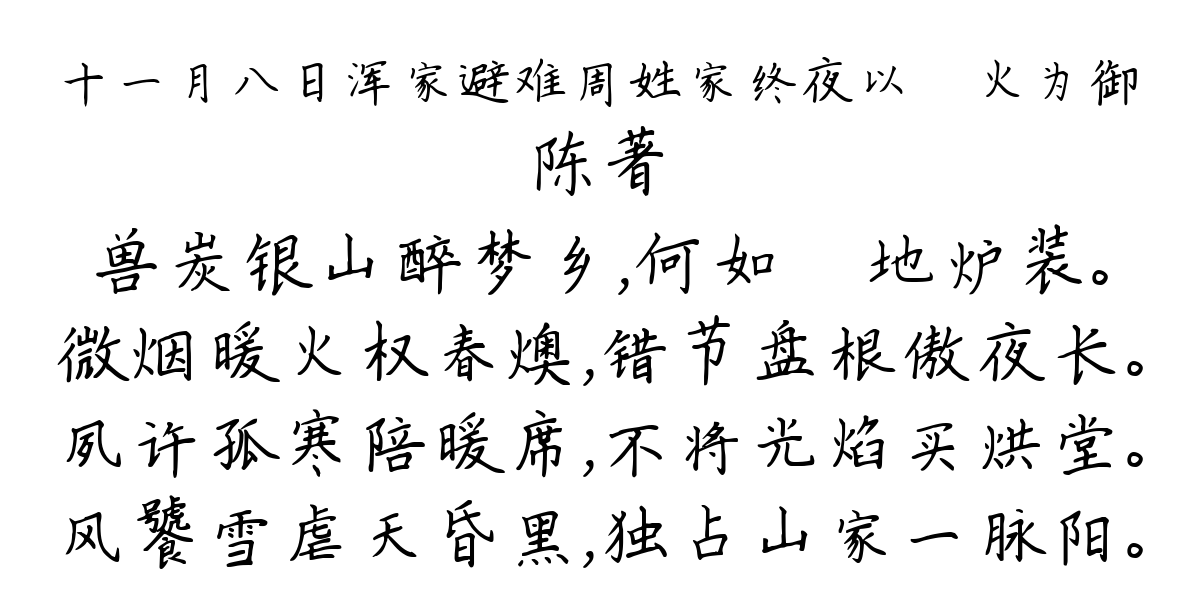 十一月八日浑家避难周姓家终夜以 火为御
陈著
兽炭银山醉梦乡,何如 地炉装。
微烟暖火权春燠,错节盘根傲夜长。
夙许孤寒陪暖席,不将光焰买烘堂。
风饕雪虐天昏黑,独占山家一脉阳。